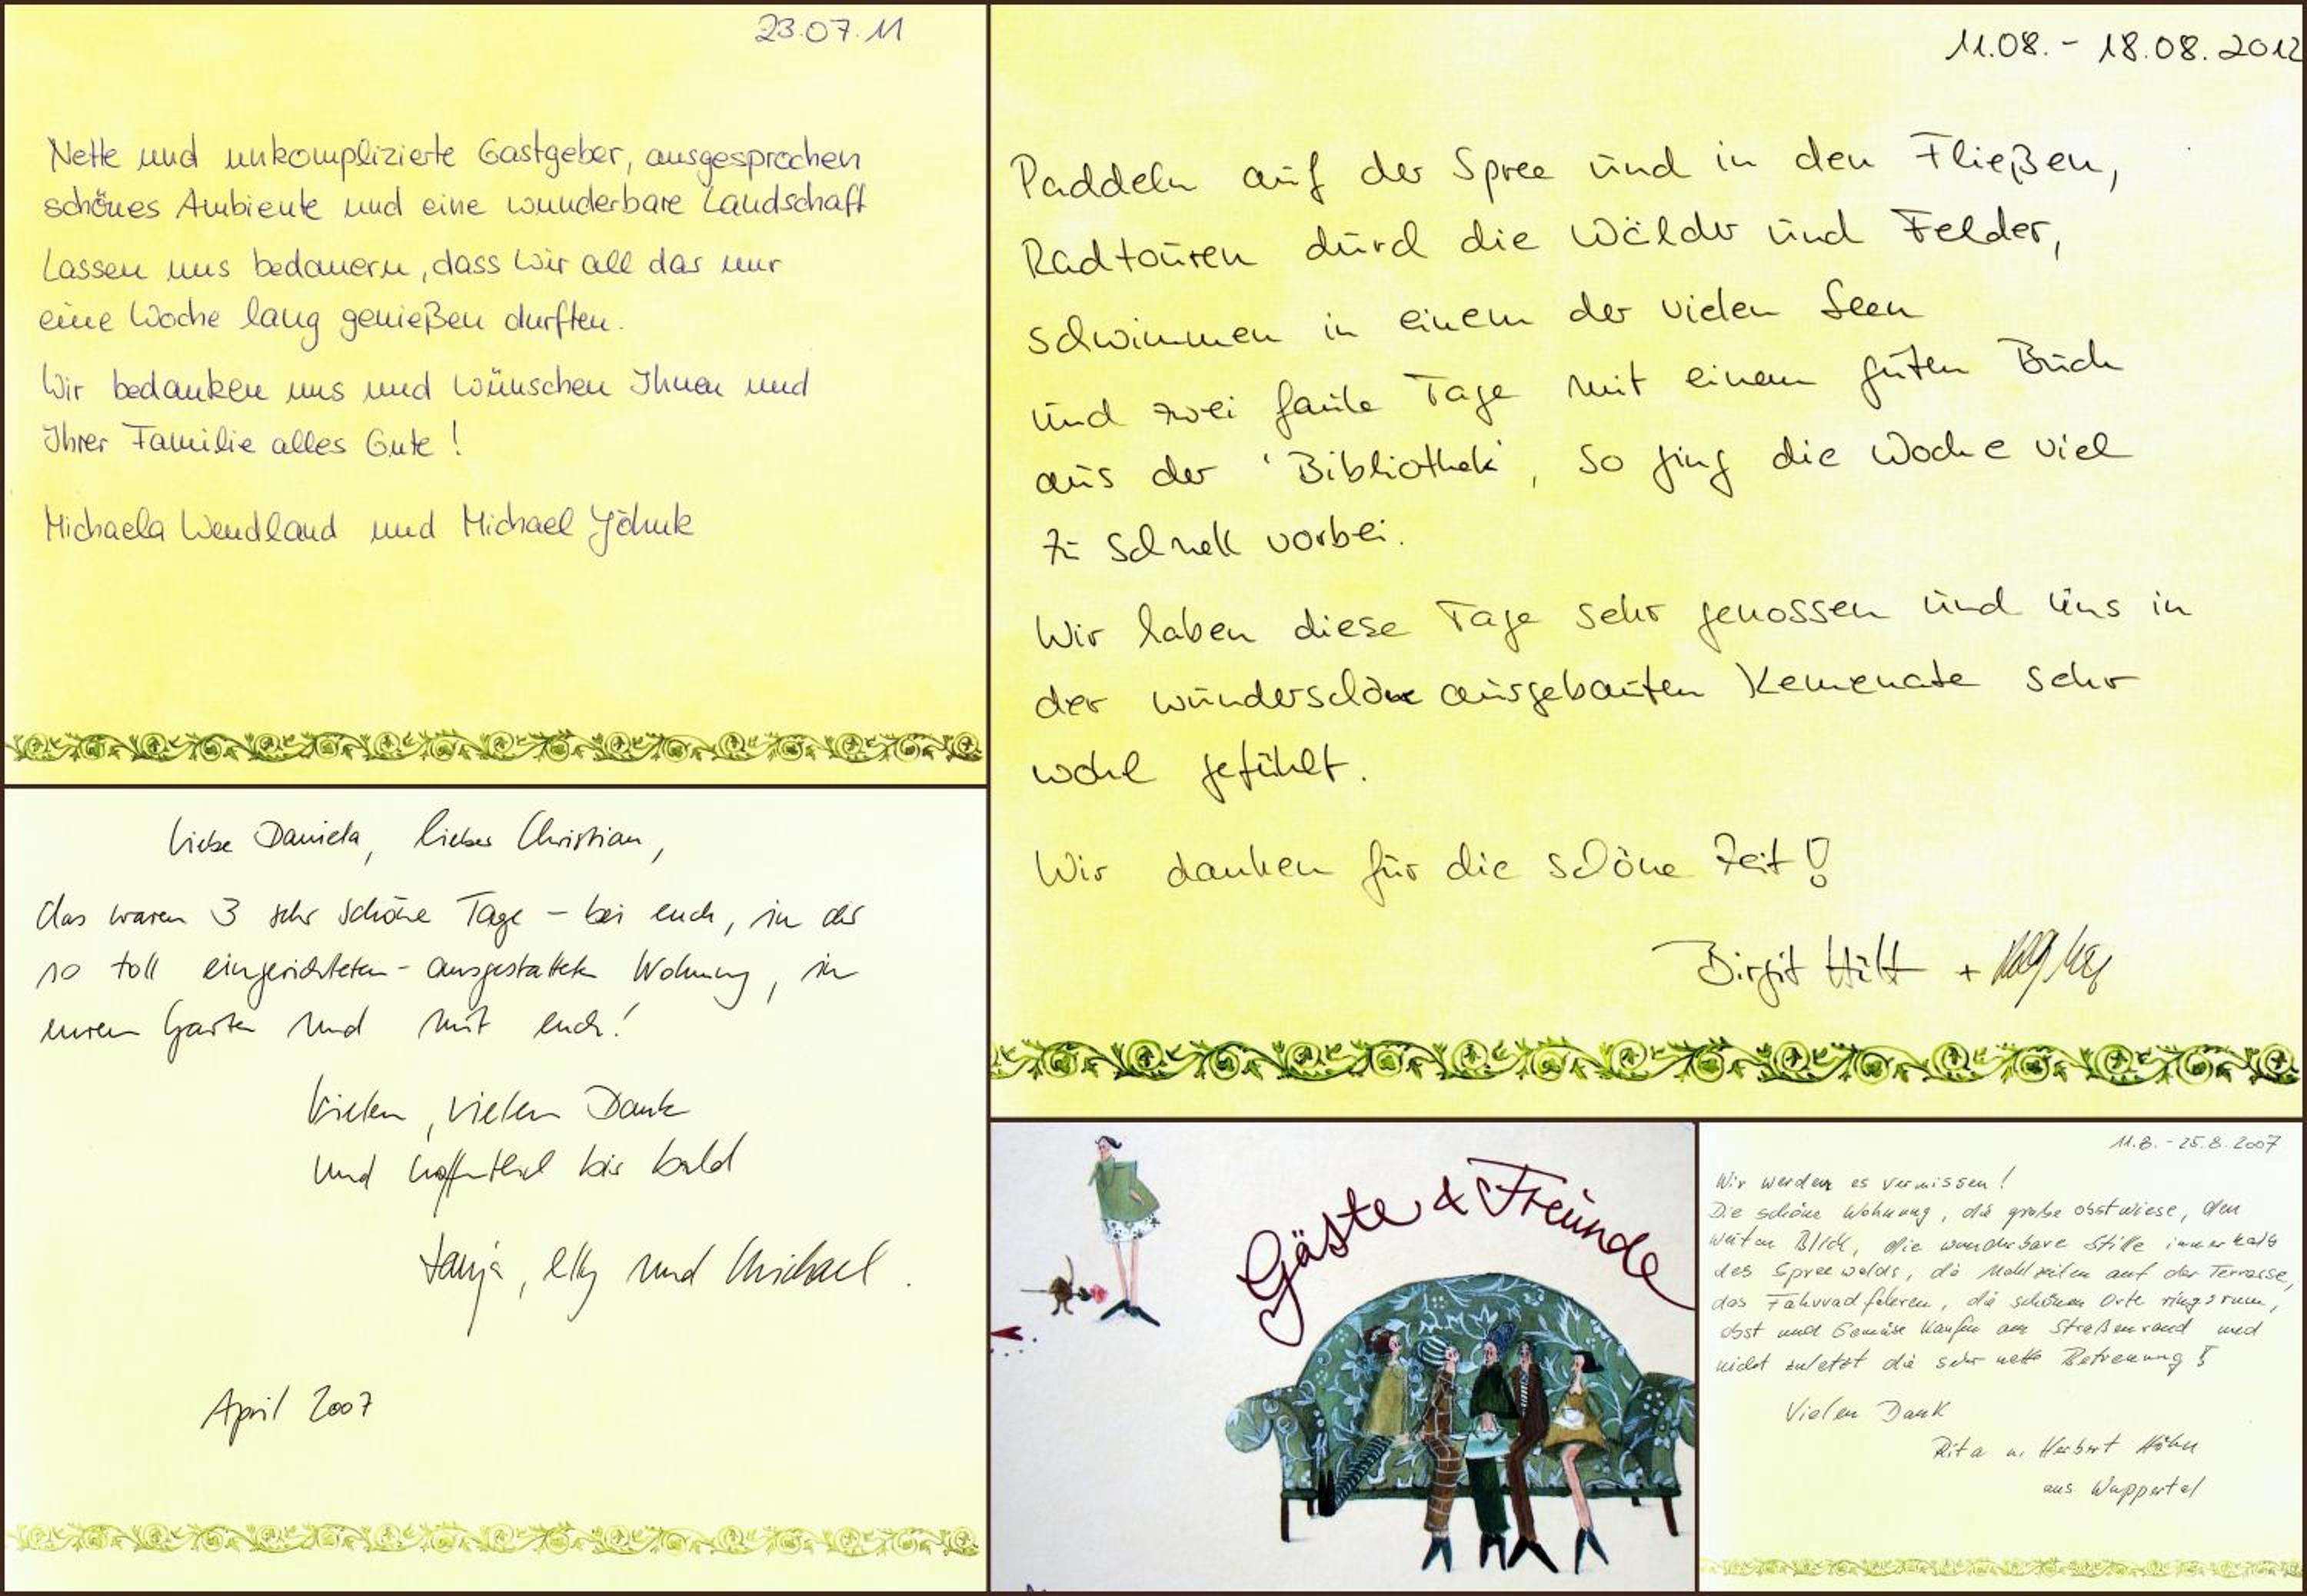 23.07.11
Nette und unkomplizierte Gastgeber, ausgesprochen
schönes Ambiente und eine wunderbare Landschaft
Lassen uns bedauern, dass wir all das nur
eine Woche lang genießen durften.
Wir bedanken uns und wünschen Ihnen und
Ihrer Familie alles Gute!
Michaela Wendland und Michael
11.08. - 18.08.2012
Paddeln auf der Spree und in den Fließen,
Radtouren durch die Wälder und Felder,
schwimmen in einem der vielen Seen
und zwei faule Tage mit einem guten Buch
aus der 'Bibliothek', so ging die Woche viel
zu schnell vorbei.
Wir haben diese Tage sehr genossen und uns in
der wunderschön ausgebauten Kemenate sehr
wohl gefühlt.
Wir danken für die schöne Zeit!
Birgit +
Liebe Daniela, lieber Christian,
das waren 3 sehr schöne Tage - bei euch, in der
so toll eingerichteten - ausgestatteten Wohnung, in
eurem Garten und mit euch!
Vielen, vielen Dank
und hoffentlich bis bald
Tanja, Elly und Michael.
April 2007
Gäste & Freunde
11.8. - 25.8.2007
Wir werden es vermissen!
Die schöne Wohnung, die große Obstwiese, den
weiten Blick, die wunderbare Stille innerhalb
des Spreewalds, die Mahlzeiten auf der Terrasse,
das Fahrradfahren, die schönen Orte ringsrum,
Obst und Gemüse kaufen am Straßenrand und
nicht zuletzt die sehr nette Betreuung!
Vielen Dank
Rita u. Herbert Höhn
aus Wuppertal